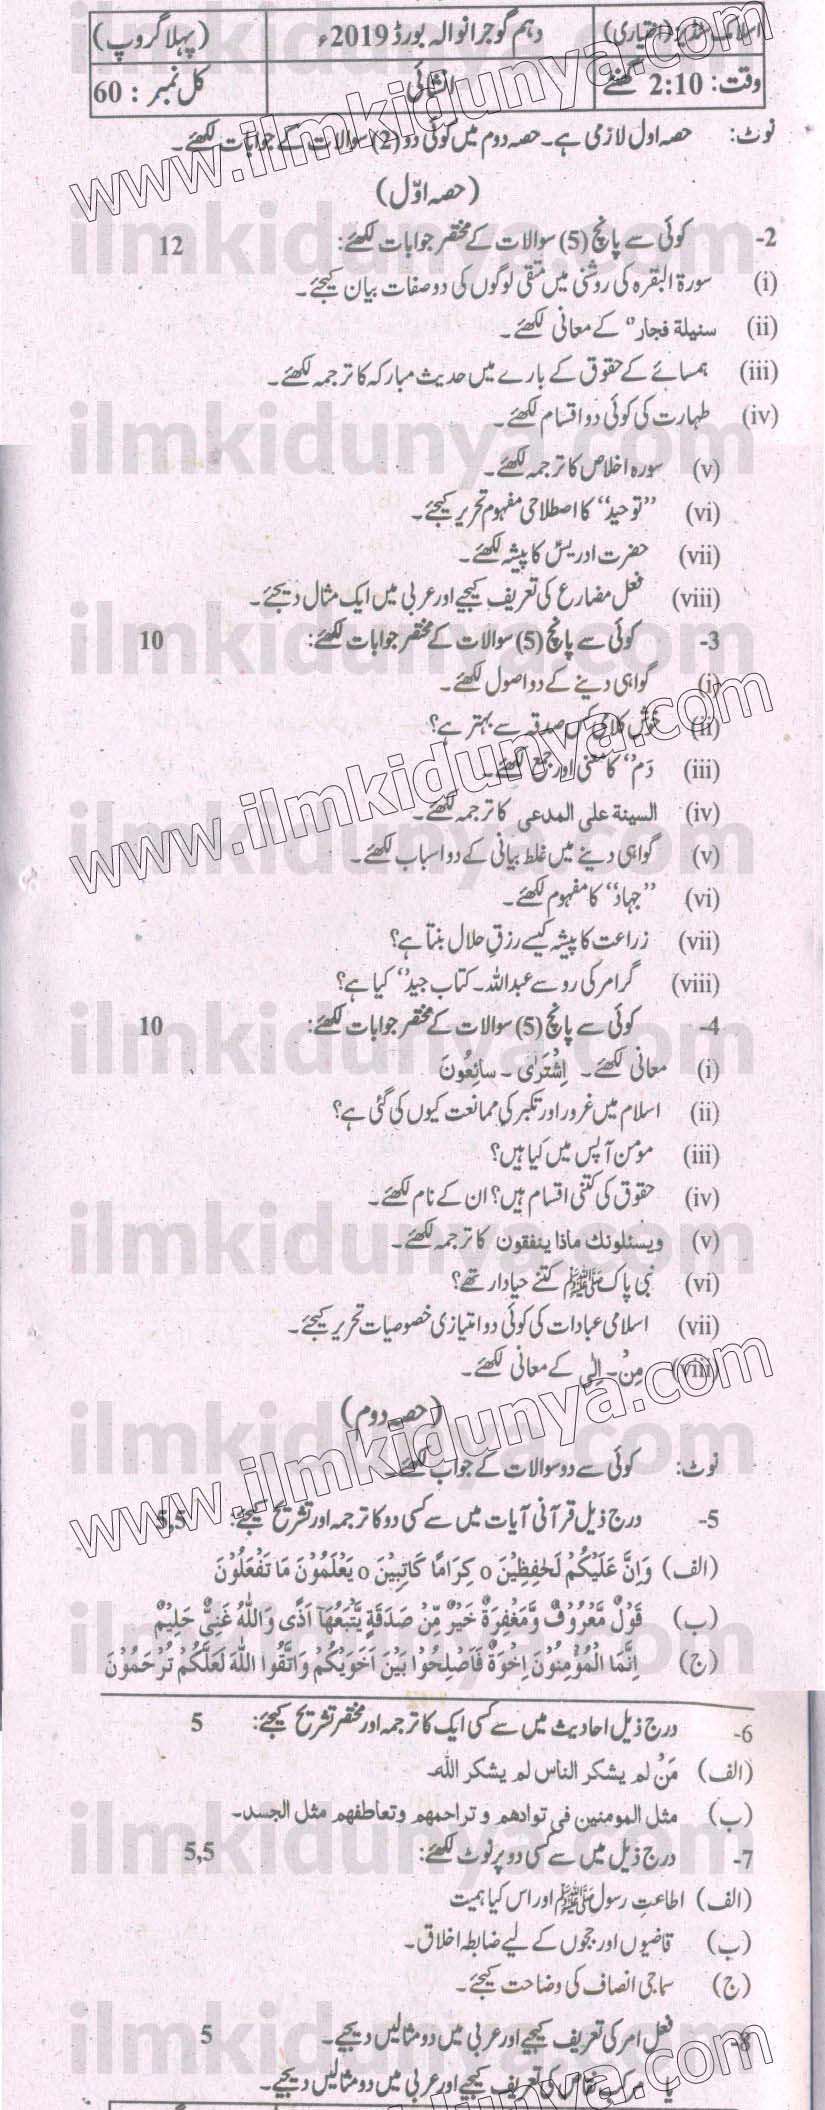 اسلامک سٹڈیز (اختیاری) دہم گوجرانوالہ بورڈ 2019ء (پہلا گروپ)
وقت: 2:10 گھنٹے انشائی کل نمبر: 60
نوٹ: حصہ اول لازمی ہے۔ حصہ دوم میں کوئی دو (2) سوالات کے جوابات لکھئے۔
(حصہ اوّل)
2- کوئی سے پانچ (5) سوالات کے مختصر جوابات لکھئے: 12
(i) سورۃ البقرہ کی روشنی میں متقی لوگوں کی دو صفات بیان کیجئے۔
(ii) سنیلة فجار" کے معانی لکھئے۔
(iii) ہمسائے کے حقوق کے بارے میں حدیث مبارکہ کا ترجمہ لکھئے۔
(iv) طہارت کی کوئی دو اقسام لکھئے۔
(v) سورہ اخلاص کا ترجمہ لکھئے۔
(vi) "توحید" کا اصطلاحی مفہوم تحریر کیجئے۔
(vii) حضرت ادریسؑ کا پیشہ لکھئے۔
(viii) فعل مضارع کی تعریف کیجیے اور عربی میں ایک مثال دیجئے۔
3- کوئی سے پانچ (5) سوالات کے مختصر جوابات لکھئے: 10
(i) گواہی دینے کے دو اصول لکھئے۔
(ii) خوش کلامی کس صدقہ سے بہتر ہے؟
(iii) دَم" کا معنی اور جمع لکھئے۔
(iv) السینة علی المدعی کا ترجمہ لکھئے۔
(v) گواہی دینے میں غلط بیانی کے دو اسباب لکھئے۔
(vi) "جہاد" کا مفہوم لکھئے۔
(vii) زراعت کا پیشہ کیسے رزق حلال بنتا ہے؟
(viii) گرامر کی رو سے عبداللہ۔ کتاب جید" کیا ہے؟
4- کوئی سے پانچ (5) سوالات کے مختصر جوابات لکھئے: 10
(i) معانی لکھئے۔ اِشْتَرٰی ۔ سائِعُونَ
(ii) اسلام میں غرور اور تکبر کی ممانعت کیوں کی گئی ہے؟
(iii) مومن آپس میں کیا ہیں؟
(iv) حقوق کی کتنی اقسام ہیں؟ ان کے نام لکھئے۔
(v) ویسئلونك ماذا ینفقون کا ترجمہ لکھئے۔
(vi) نبی پاک ﷺ کتنے حیادار تھے؟
(vii) اسلامی عبادات کی کوئی دو امتیازی خصوصیات تحریر کیجئے۔
(viii) مِنْ۔ اِلٰی کے معانی لکھئے۔
(حصہ دوم)
نوٹ: کوئی سے دو سوالات کے جواب لکھئے۔
5- درج ذیل قرآنی آیات میں سے کسی دو کا ترجمہ اور تشریح کیجئے: 5,5
(الف) وَاِنَّ عَلَیْکُمْ لَحٰفِظِیْنَ o کِرَامًا کَاتِبِیْنَ o یَعْلَمُوْنَ مَا تَفْعَلُوْنَ
(ب) قَوْلٌ مَّعْرُوْفٌ وَّمَغْفِرَةٌ خَیْرٌ مِّنْ صَدَقَةٍ یَّتْبَعُهَآ اَذًی وَاللّٰهُ غَنِیٌّ حَلِیْمٌ
(ج) اِنَّمَا الْمُؤْمِنُوْنَ اِخْوَةٌ فَاَصْلِحُوْا بَیْنَ اَخَوَیْکُمْ وَاتَّقُوا اللّٰهَ لَعَلَّکُمْ تُرْحَمُوْنَ
6- درج ذیل احادیث میں سے کسی ایک کا ترجمہ اور مختصر تشریح کیجئے: 5
(الف) مَنْ لم یشکر الناس لم یشکر اللہ۔
(ب) مثل المومنین فی توادھم و تراحمھم وتعاطفھم مثل الجسد۔
7- درج ذیل میں سے کسی دو پر نوٹ لکھئے: 5,5
(الف) اطاعتِ رسول ﷺ اور اس کیا ہمیت
(ب) قاضیوں اور ججوں کے لیے ضابطہ اخلاق۔
(ج) سماجی انصاف کی وضاحت کیجئے۔
8- فعل امر کی تعریف کیجیے اور عربی میں دو مثالیں دیجیے۔ 5
یا مرکب ناقص کی تعریف کیجیے اور عربی میں دو مثالیں دیجیے۔
www.ilmkidunya.com
ilmkidunya.com